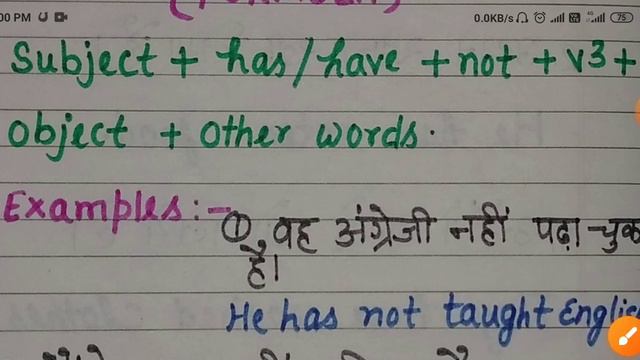 0.0KB/s
75
Subject + has/have + not + v3 +
object + other words.
Examples :-
① वह अंग्रेजी नहीं पढ़ा
है।
He has not taught